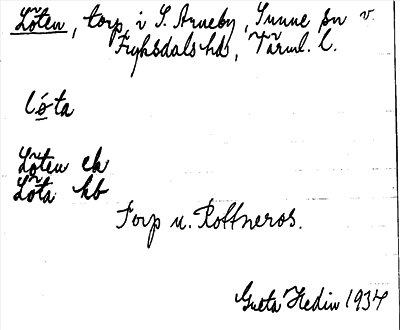 Löten, torp i S. Arneby, Sunne sn v.
Fryksdals hd, Värml. l.
lóta
Löten ek
Löta kb
Torp u. Rottneros.
Greta Hedin 1934